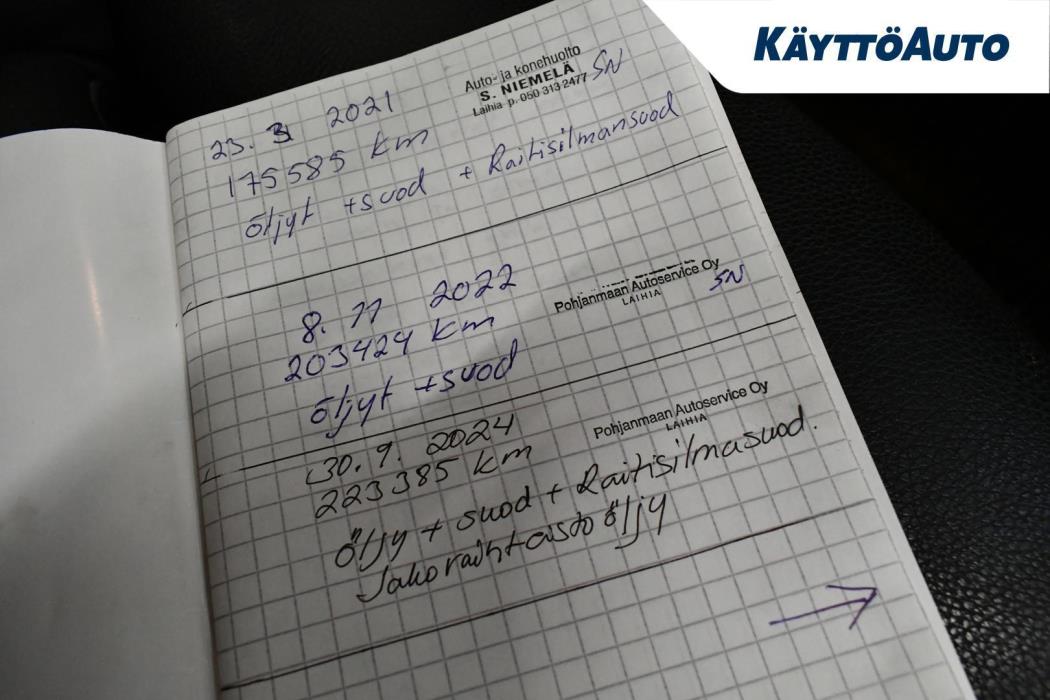 KÄYTTÖAUTO
Auto- ja konehuolto
S. NIEMELÄ
Laihia p. 050 313 2477
SN
23. 3 2021
175585 km
öljyt + suod + Raitisilmansuod
Pohjanmaan Autoservice Oy
LAIHIA
SN
8. 11 2022
203424 km
öljyt + suod
Pohjanmaan Autoservice Oy
LAIHIA
30. 9. 2024
223385 km
öljy + suod + Raitisilmasuod.
Jakoraihtaisto öljy